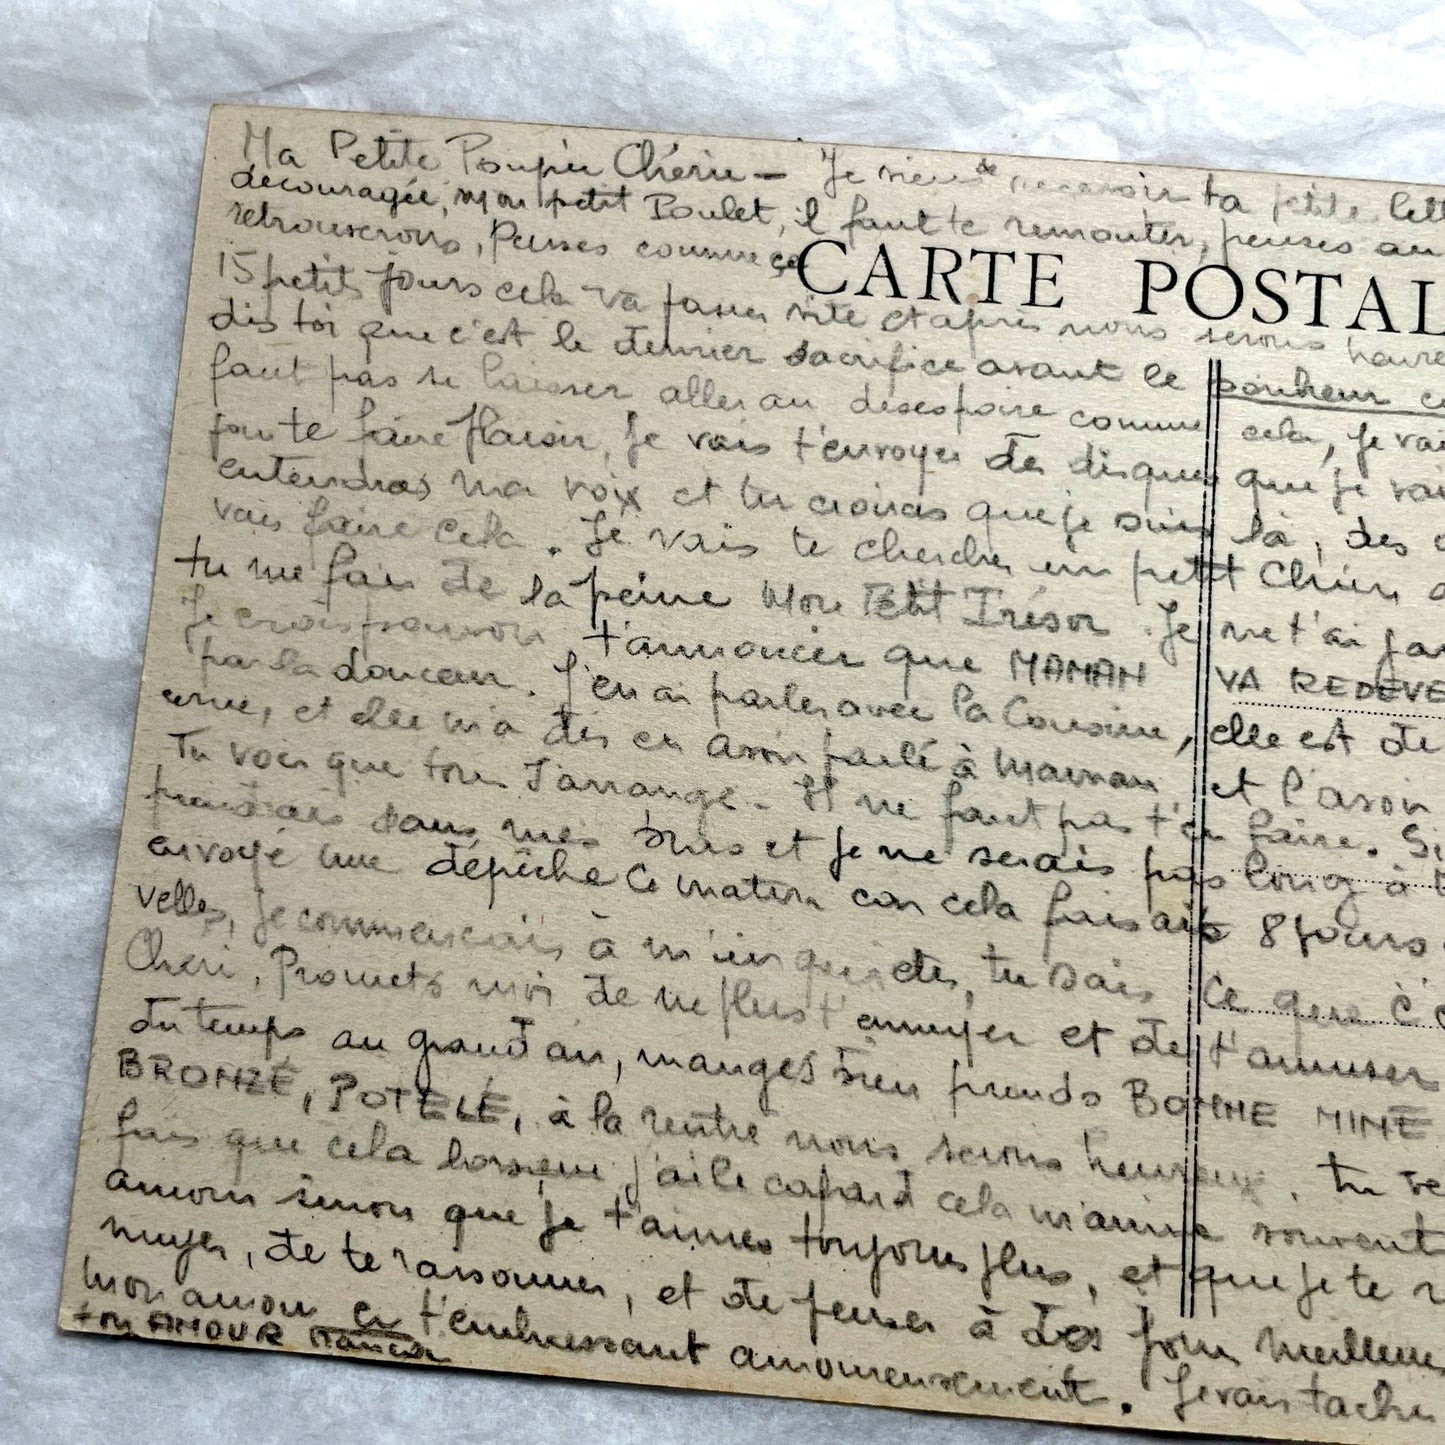 Ma Petite Poupée Chérie - Je viens de recevoir ta petite lett
decouragée, mon petit Poulet, il faut te remonter, penses au
retrouverons, Penses comme ça
CARTE POSTAL
15 petits jours cela va passer vite et après nous serons heure
dis toi que c'est le dernier sacrifice avant le bonheur
faut pas se laisser aller au desespoire comme cela, je vai
pour te faire plaisir, je vais t'envoyer des disques que je vai
entendras ma voix et tu croiras que je suis là, des
vais faire cela. Je vais te chercher un petit Chien
tu me fais de la peine Mon Petit Trésor. Je ne t'ai jam
Je crois pouvoir t'annoncer que MAMAN VA REDEVE
par la douceur. J'en ai parler avec la Cousine, elle est de
et elle m'a dis en avoir parlé à Maman et l'avoir
Tu vois que tous s'arrange - Il ne faut pas t'en faire. Si
prendrais dans mes bras et je ne serais pas long à
envoyé une depêche ce matin car cela faisait 8 jours
velles, je commencais à m'inquieter, tu sais ce que c'e
Cheri, Promets moi de ne plus t'ennuyer et de t'amuser
du temps au grand air, manges bien prends BONNE MINE
BRONZÉ, POTELÉ, à la rentré nous serons heureux. tu
fais que cela lorsque j'ai le cafard cela m'arrive souvent
amour sinon que je t'aimes toujours plus, et que je te
nuyer, de te raisonner, et de penser à des jours meilleurs
mon amour en t'embrassant amoureusement. Je vais tacher
ton AMOUR